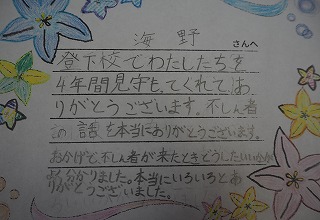 海野 さんへ
登下校でわたしたちを
4年間見守もてくれて、あ
りがとうございます。不しん者
の話を本当にありがとうございます。
おかげで、不しん者が来たときどうしたらいいかが
よく分かりました。本当にいろいろとあ
りがとうございました。